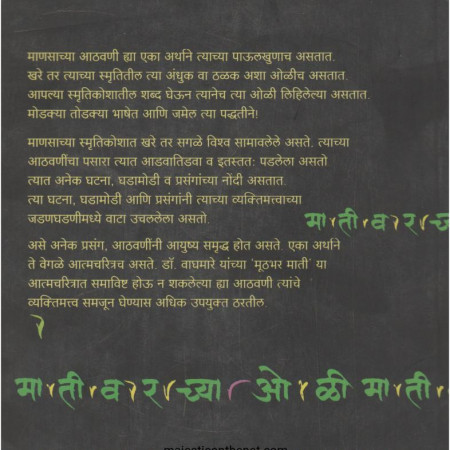 माणसाच्या आठवणी ह्या एका अर्थाने त्याच्या पाऊलखुणाच असतात.
खरे तर त्याच्या स्मृतितील त्या अंधुक वा ठळक अशा ओळीच असतात.
आपल्या स्मृतिकोशातील शब्द घेऊन त्यानेच त्या ओळी लिहिलेल्या असतात.
मोडक्या तोडक्या भाषेत आणि जमेल त्या पद्धतीने!
माणसाच्या स्मृतिकोशात खरे तर सगळे विश्व सामावलेले असते. त्याच्या
आठवणींचा पसारा त्यात आडवातिडवा व इतस्तत: पडलेला असतो
त्यात अनेक घटना, घडामोडी व प्रसंगांच्या नोंदी असतात.
त्या घटना, घडामोडी आणि प्रसंगांनी त्याच्या व्यक्तिमत्त्वाच्या
जडणघडणीमध्ये वाटा उचललेला असतो.
मातीवरच्य
असे अनेक प्रसंग, आठवणींनी आयुष्य समृद्ध होत असते. एका अर्थाने
ते वेगळे आत्मचरित्रच असते. डॉ. वाघमारे यांच्या 'मूठभर माती' या
आत्मचरित्रात समाविष्ट होऊ न शकलेल्या ह्या आठवणी त्यांचे
व्यक्तिमत्त्व समजून घेण्यास अधिक उपयुक्त ठरतील.
मातीवरच्या ओळी माती